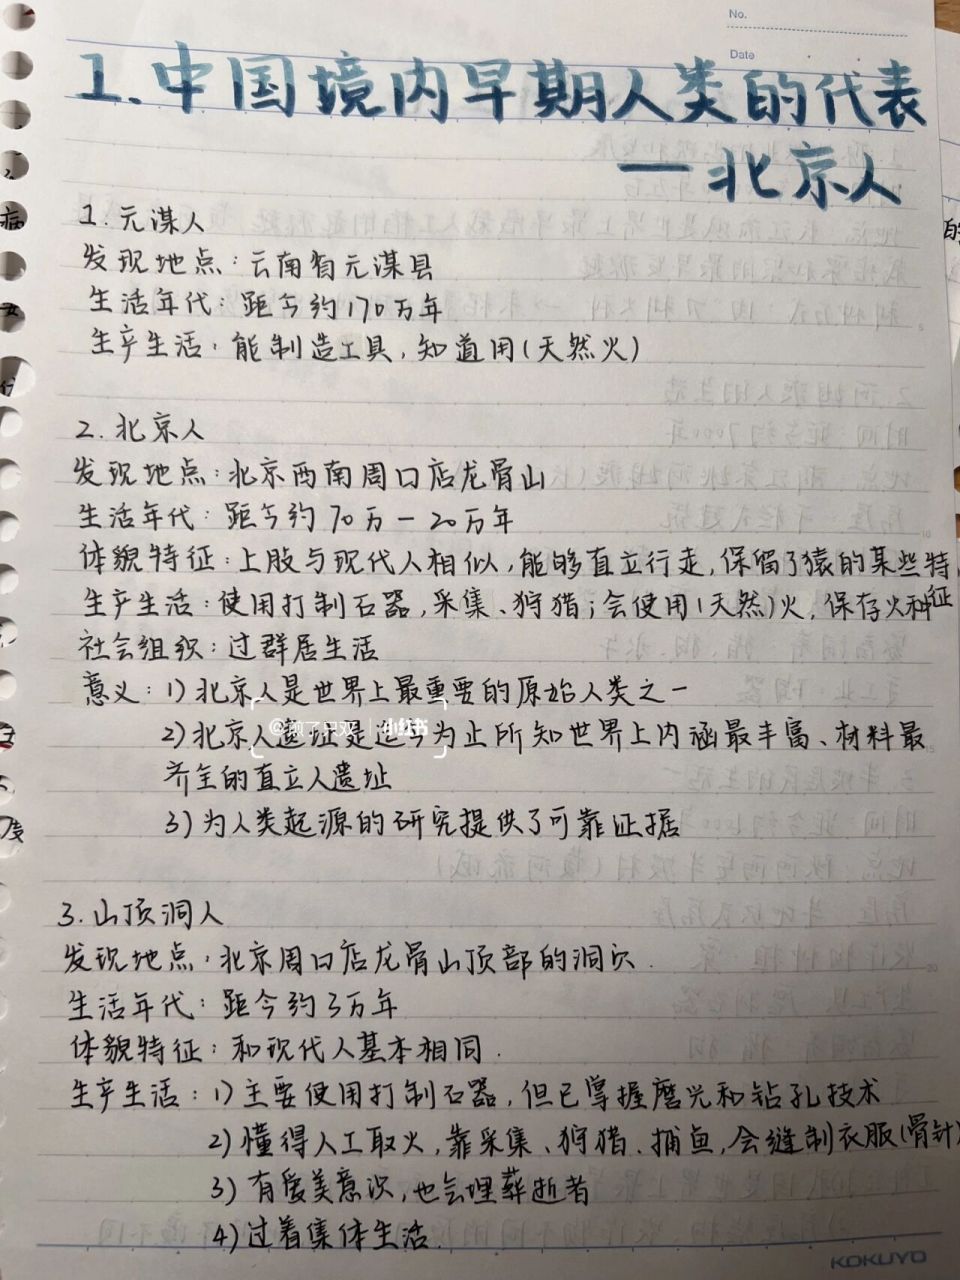 No.
Date
1.中国境内早期人类的代表
—北京人
1.元谋人
发现地点:云南省元谋县
生活年代:距今约170万年
生产生活:能制造工具,知道用(天然火)
2.北京人
发现地点:北京西南周口店龙骨山
生活年代:距今约70万—20万年
体貌特征:上肢与现代人相似,能够直立行走,保留了猿的某些特征
生产生活:使用打制石器,采集、狩猎;会使用(天然)火,保存火种
社会组织:过群居生活
意义:1)北京人是世界上最重要的原始人类之一
2)北京人遗址是迄今为止所知世界上内涵最丰富、材料最
齐全的直立人遗址
3)为人类起源的研究提供了可靠证据
小红书
3.山顶洞人
发现地点:北京周口店龙骨山顶部的洞穴.
生活年代:距今约3万年
体貌特征:和现代人基本相同.
生产生活:1)主要使用打制石器,但已掌握磨光和钻孔技术
2)懂得人工取火,靠采集、狩猎、捕鱼,会缝制衣服(骨针)
3)有爱美意识,也会埋葬逝者
4)过着集体生活.
KOKUYO